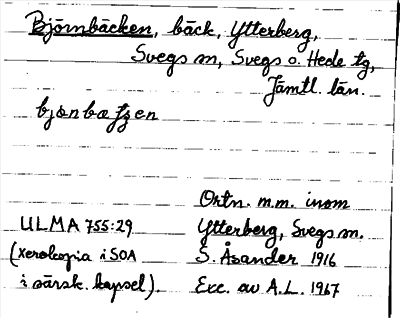 Björnbäcken, bäck, Ytterberg,
Svegs sn, Svegs o. Hede tg,
Jämtl. län.
Ortn. m.m. inom
ULMA 755:29 Ytterberg, Svegs sn.
(xerokopia i SOA S. Åsander 1916
i särsk. kapsel). Exc. av A.L. 1967